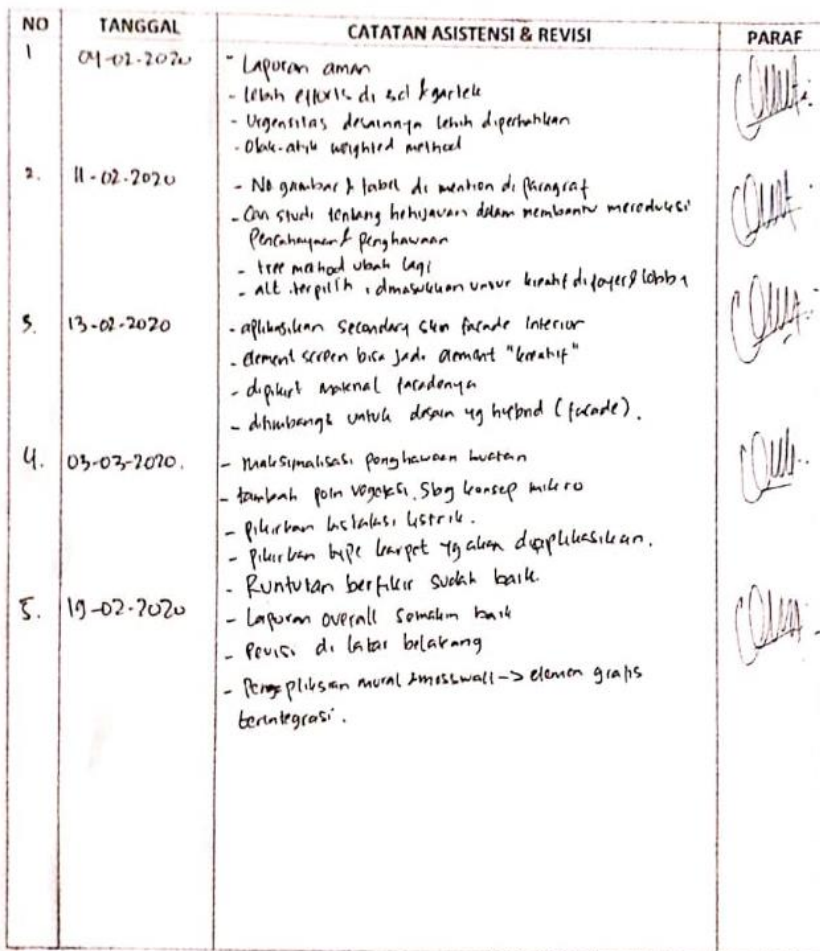 NO TANGGAL CATATAN ASISTENSI & REVISI PARAF
1 04-02-2020 - Laporan aman
- lebih efforts di & gartek
- Urgensitas desainnya lebih diperhatikan
- Otak-atik weighted method
2. 11-02-2020 - No gambar & tabel di mention di paragraf
- Cari studi tentang kehijauan dalam membantu mereduksi
Pencahayaan & penghawaan
- tree method ubah lagi
- alt. terpilih, dimasukkan unsur kreatif di foyer & lobby
3. 13-02-2020 - aplikasikan secondary skin facade interior
- element screen bisa jadi element "kreatif"
- dipikir material facadenya
- ditimbangi untuk desain yg hybrid (facade).
4. 03-03-2020. - Maksimalisasi penghawaan buatan
- tambah poin vegetasi sbg konsep mikro
- pikirkan instalasi listrik.
- pikirkan type karpet yg akan diaplikasikan.
- Runtutan berfikir sudah baik.
5. 19-02-2020 - Laporan overall semakin baik
- Revisi di latar belakang
- Pengaplikasian mural & mosswall -> elemen grafis
terintegrasi.